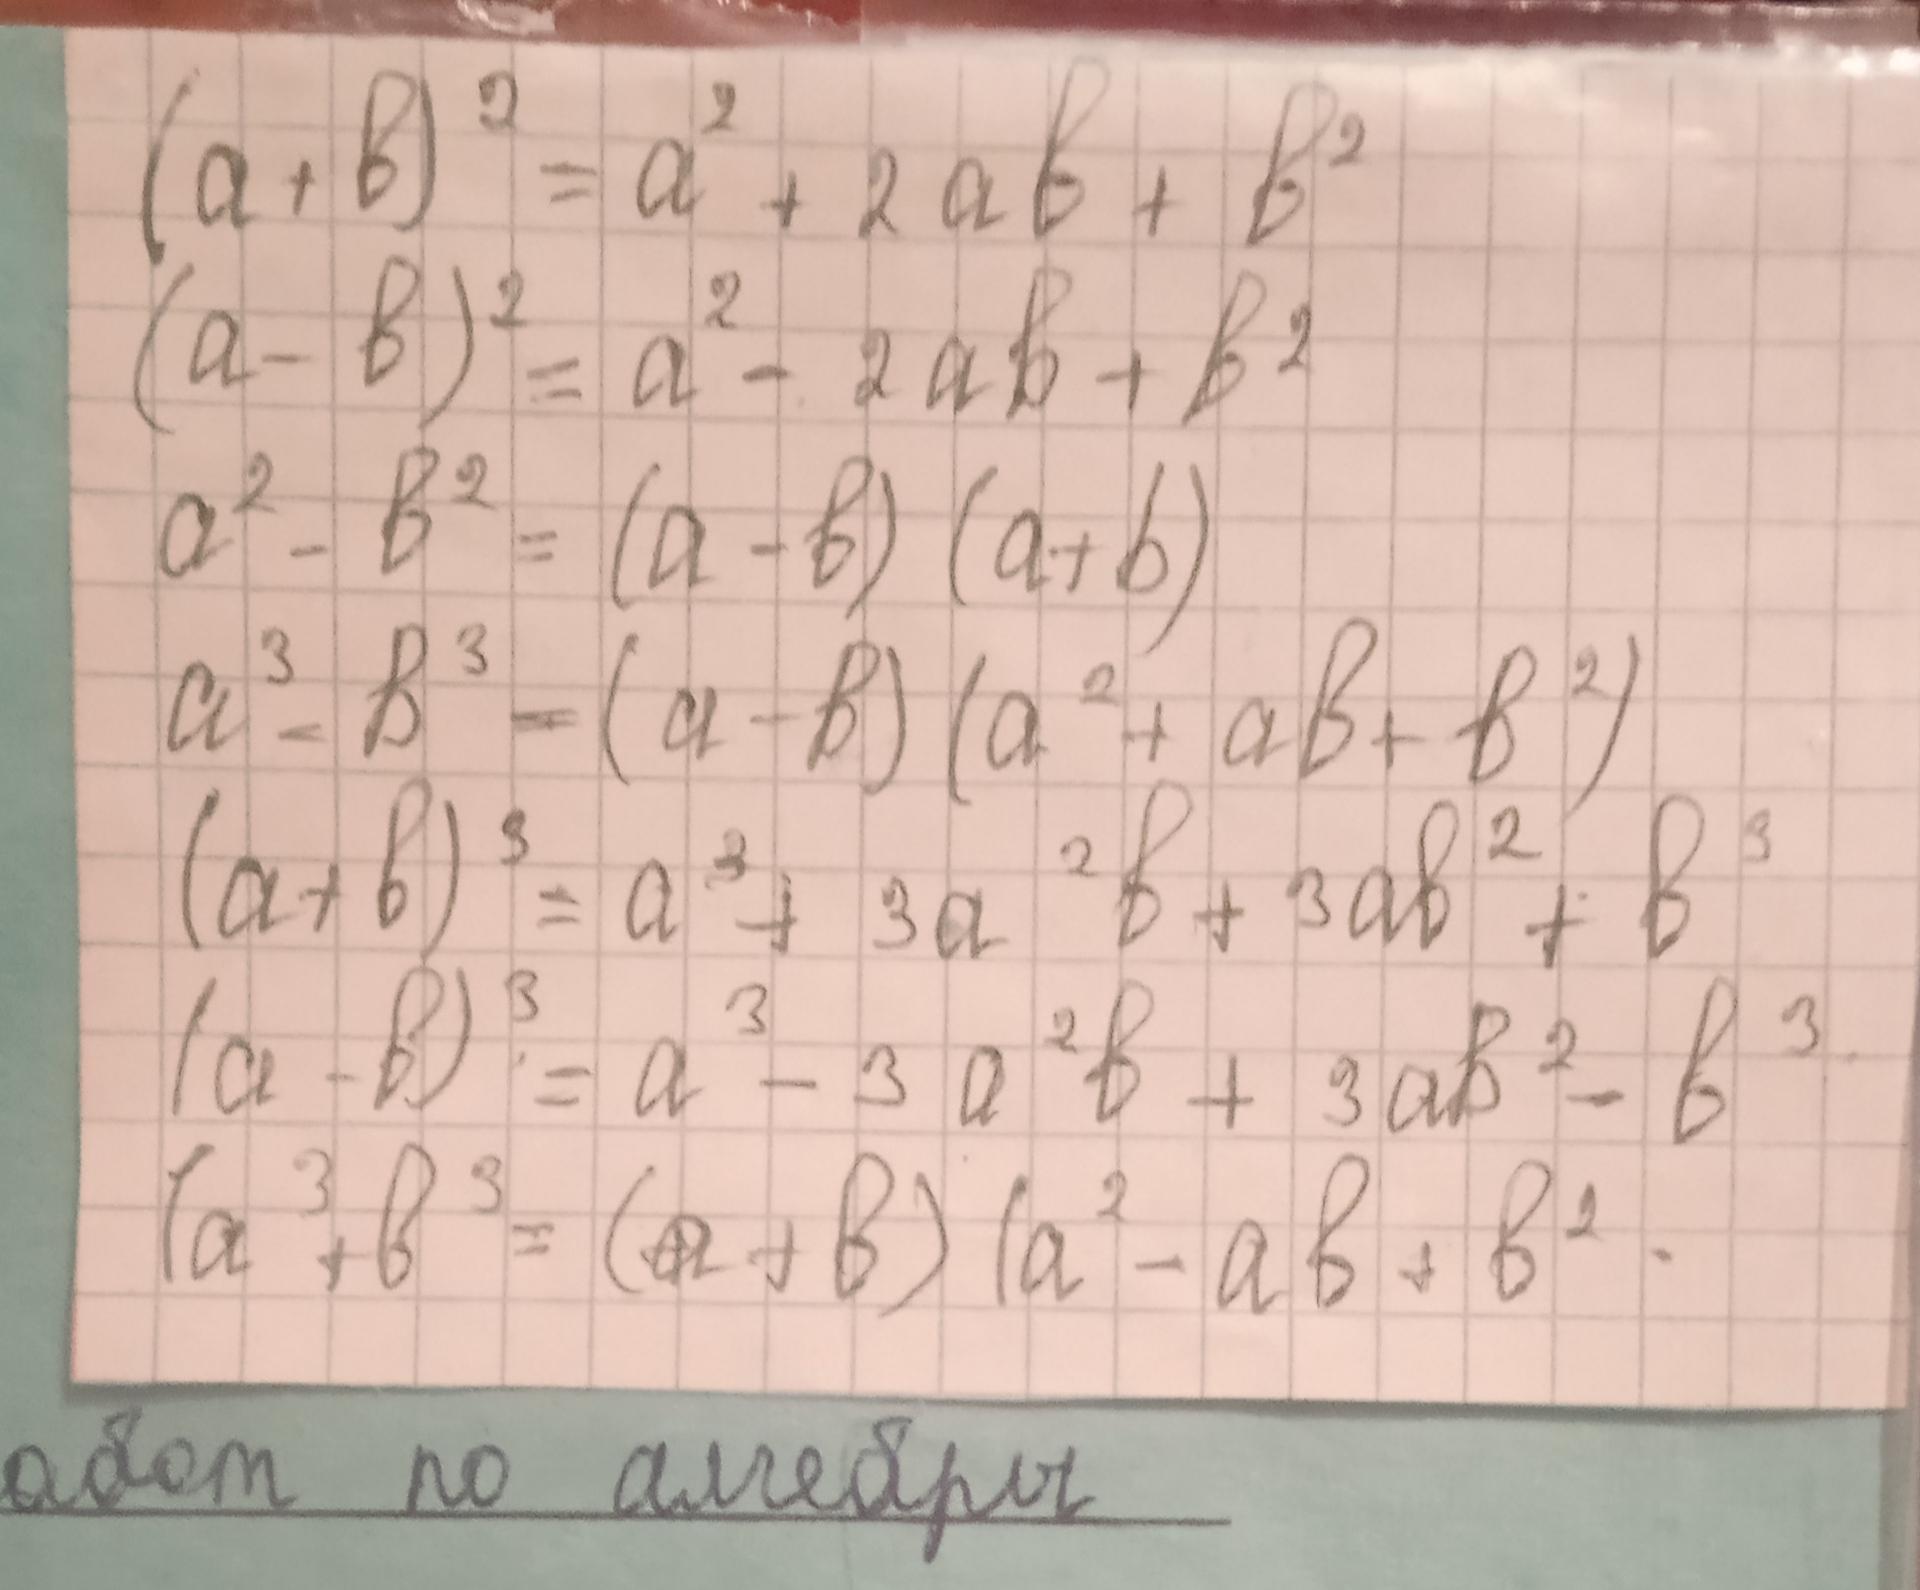 (a+b)² = a² + 2ab + b²
(a-b)² = a² - 2ab + b²
a² - b² = (a-b) (a+b)
a³ - b³ = (a-b) (a² + ab + b²)
(a+b)³ = a³ + 3a²b + 3ab² + b³
(a-b)³ = a³ - 3a²b + 3ab² - b³
(a³ + b³ = (a+b) (a² - ab + b².
абот по алгебры